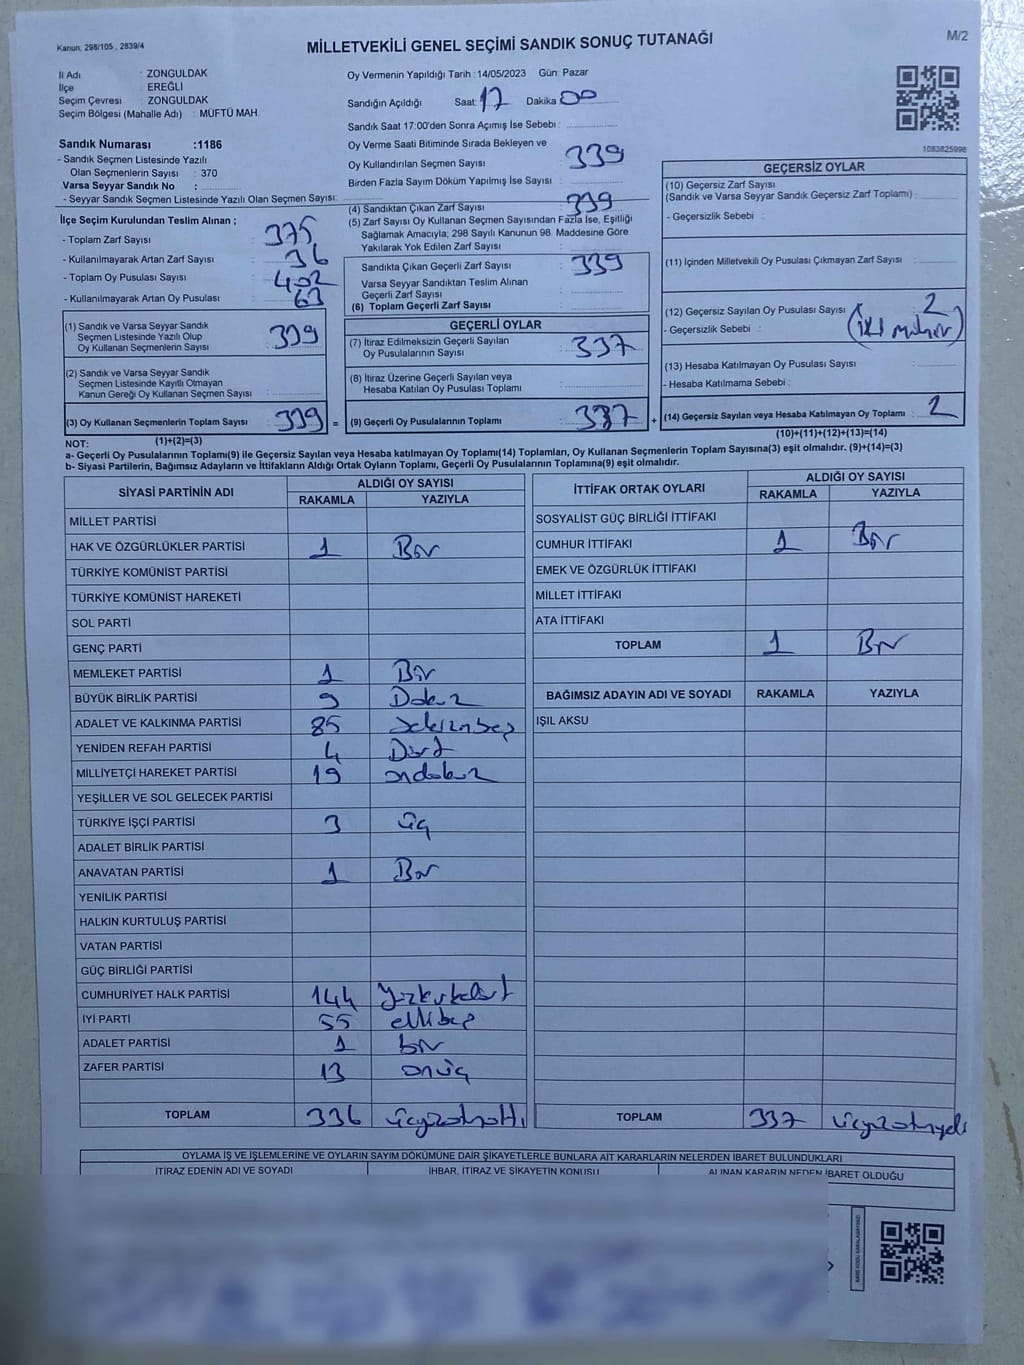 Kanun; 298/105 , 2839/4
MİLLETVEKİLİ GENEL SEÇİMİ SANDIK SONUÇ TUTANAĞI
M/2
İl Adı : ZONGULDAK
İlçe : EREĞLİ
Seçim Çevresi : ZONGULDAK
Seçim Bölgesi (Mahalle Adı) : MÜFTÜ MAH.
Sandık Numarası :1186
- Sandık Seçmen Listesinde Yazılı
Olan Seçmenlerin Sayısı : 370
Varsa Seyyar Sandık No :
- Seyyar Sandık Seçmen Listesinde Yazılı Olan Seçmen Sayısı:
İlçe Seçim Kurulundan Teslim Alınan ;
- Toplam Zarf Sayısı : 375
- Kullanılmayarak Artan Zarf Sayısı : 36
- Toplam Oy Pusulası Sayısı : 402
- Kullanılmayarak Artan Oy Pusulası : 63
(1) Sandık ve Varsa Seyyar Sandık
Seçmen Listesinde Yazılı Olup
Oy Kullanan Seçmenlerin Sayısı : 339
(2) Sandık ve Varsa Seyyar Sandık
Seçmen Listesinde Kayıtlı Olmayan
Kanun Gereği Oy Kullanan Seçmen Sayısı :
(3) Oy Kullanan Seçmenlerin Toplam Sayısı : 339 =
Oy Vermenin Yapıldığı Tarih : 14/05/2023 Gün: Pazar
Sandığın Açıldığı Saat: 17 Dakika 00
Sandık Saat 17:00'den Sonra Açımış İse Sebebi :
Oy Verme Saati Bitiminde Sırada Bekleyen ve
Oy Kullandırılan Seçmen Sayısı : 339
Birden Fazla Sayım Döküm Yapılmış İse Sayısı :
(4) Sandıktan Çıkan Zarf Sayısı : 339
(5) Zarf Sayısı Oy Kullanan Seçmen Sayısından Fazla İse, Eşitliği
Sağlamak Amacıyla; 298 Sayılı Kanunun 98. Maddesine Göre
Yakılarak Yok Edilen Zarf Sayısı :
Sandıkta Çıkan Geçerli Zarf Sayısı : 339
Varsa Seyyar Sandıktan Teslim Alınan
Geçerli Zarf Sayısı :
(6) Toplam Geçerli Zarf Sayısı :
GEÇERLİ OYLAR
(7) İtiraz Edilmeksizin Geçerli Sayılan
Oy Pusulalarının Sayısı : 337
(8) İtiraz Üzerine Geçerli Sayılan veya
Hesaba Katılan Oy Pusulası Toplamı :
(9) Geçerli Oy Pusulalarının Toplamı : 337 +
1083825998
GEÇERSİZ OYLAR
(10) Geçersiz Zarf Sayısı
(Sandık ve Varsa Seyyar Sandık Geçersiz Zarf Toplamı) :
- Geçersizlik Sebebi :
(11) İçinden Milletvekili Oy Pusulası Çıkmayan Zarf Sayısı :
(12) Geçersiz Sayılan Oy Pusulası Sayısı : 2
- Geçersizlik Sebebi : (iki mühür)
(13) Hesaba Katılmayan Oy Pusulası Sayısı :
- Hesaba Katılmama Sebebi :
(14) Geçersiz Sayılan veya Hesaba Katılmayan Oy Toplamı : 2
NOT: (1)+(2)=(3)
(10)+(11)+(12)+(13)=(14)
a- Geçerli Oy Pusulalarının Toplamı(9) ile Geçersiz Sayılan veya Hesaba katılmayan Oy Toplamı(14) Toplamları, Oy Kullanan Seçmenlerin Toplam Sayısına(3) eşit olmalıdır. (9)+(14)=(3)
b- Siyasi Partilerin, Bağımsız Adayların ve İttifakların Aldığı Ortak Oyların Toplamı, Geçerli Oy Pusulalarının Toplamına(9) eşit olmalıdır.
SİYASİ PARTİNİN ADI ALDIĞI OY SAYISI
RAKAMLA YAZIYLA
MİLLET PARTİSİ
HAK VE ÖZGÜRLÜKLER PARTİSİ 1 Bir
TÜRKİYE KOMÜNİST PARTİSİ
TÜRKİYE KOMÜNİST HAREKETİ
SOL PARTİ
GENÇ PARTİ
MEMLEKET PARTİSİ 1 Bir
BÜYÜK BİRLİK PARTİSİ 9 Dokuz
ADALET VE KALKINMA PARTİSİ 85 Seksenbeş
YENİDEN REFAH PARTİSİ 4 Dört
MİLLİYETÇİ HAREKET PARTİSİ 19 ondokuz
YEŞİLLER VE SOL GELECEK PARTİSİ
TÜRKİYE İŞÇİ PARTİSİ 3 üç
ADALET BİRLİK PARTİSİ
ANAVATAN PARTİSİ 1 Bir
YENİLİK PARTİSİ
HALKIN KURTULUŞ PARTİSİ
VATAN PARTİSİ
GÜÇ BİRLİĞİ PARTİSİ
CUMHURİYET HALK PARTİSİ 144 Yüzkırkdört
İYİ PARTİ 55 ellibeş
ADALET PARTİSİ 1 bir
ZAFER PARTİSİ 13 onüç
TOPLAM 336 üçyüzotuzaltı
İTTİFAK ORTAK OYLARI ALDIĞI OY SAYISI
RAKAMLA YAZIYLA
SOSYALİST GÜÇ BİRLİĞİ İTTİFAKI
CUMHUR İTTİFAKI 1 Bir
EMEK VE ÖZGÜRLÜK İTTİFAKI
MİLLET İTTİFAKI
ATA İTTİFAKI
TOPLAM 1 Bir
BAĞIMSIZ ADAYIN ADI VE SOYADI RAKAMLA YAZIYLA
IŞIL AKSU
TOPLAM 337 üçyüzotuzyedi
OYLAMA İŞ VE İŞLEMLERİNE VE OYLARIN SAYIM DÖKÜMÜNE DAİR ŞİKAYETLERLE BUNLARA AİT KARARLARIN NELERDEN İBARET BULUNDUKLARI
İTİRAZ EDENİN ADI VE SOYADI İHBAR, İTİRAZ VE ŞİKAYETİN KONUSU ALINAN KARARIN NEDEN İBARET OLDUĞU